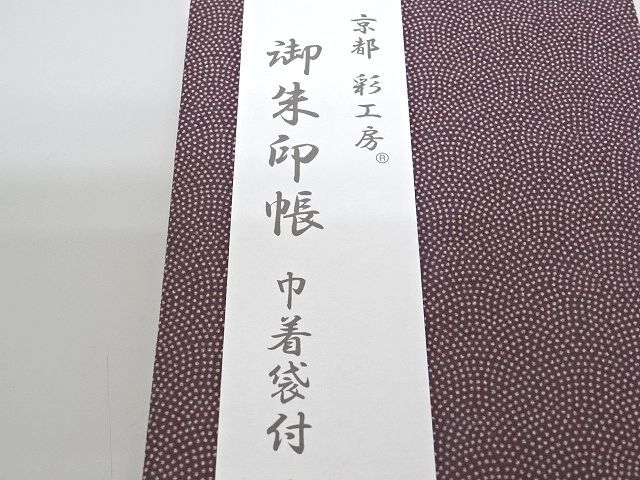 京都 彩工房®
御朱印帳 巾着袋付